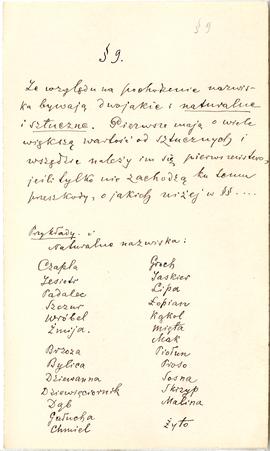 § 9
§ 9.
Ze względu na pochodzenie nazwis-
ka bywają dwojakie: naturalne
i sztuczne. Pierwsze mają o wiele
większą wartość od sztucznych i
wszędzie należy im się pierwszeństwo,
jeśli tylko nie zachodzą ku temu
przeszkody, o jakich niżej w §§ ....
Przykłady:
Naturalne nazwiska:
Czapla
Jesiotr
Padalec
Szczur
Wróbel
Żmija.
Brzoza
Bylica
Dziewanna
Dziewięciornik
Dąb
Głucha
Chmiel
Groch
Jaskier
Lipa
Łopian
Kąkol
Mięta
Mak
Piołun
Proso
Sosna
Skrzyp
Malina
Żyto